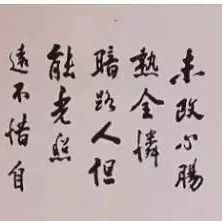 未改心腸
熱全憐
暗路人但
能光照
遠不惜自